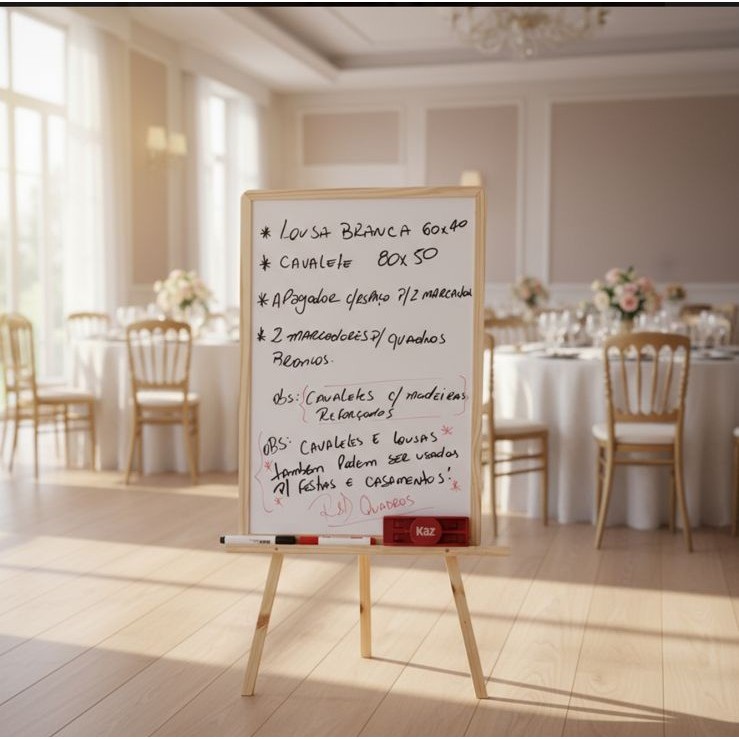 * LOUSA BRANCA 60x40
* CAVALETE 80x50
* APAGADOR C/ESPAÇO P/2 MARCADOR
* 2 MARCADORES P/ QUADROS
BRANCOS.
OBS: CAVALETES C/ MADEIRAS
REFORÇADAS
OBS: CAVALETES E LOUSAS *
* TAMBÉM PODEM SER USADAS
P/ FESTAS E CASAMENTOS! *
* QUADROS
Kaz